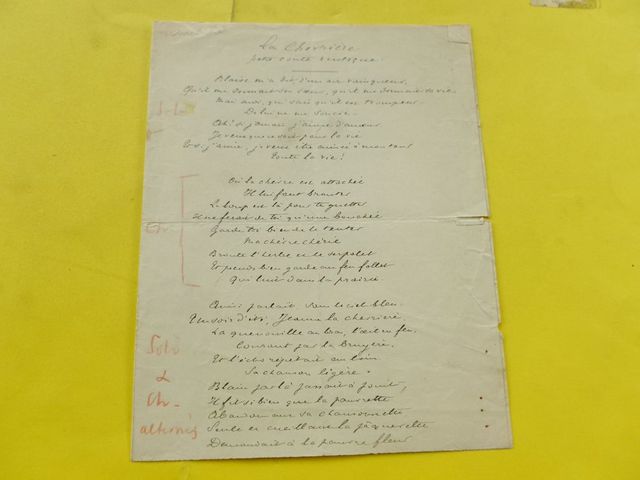 La Chevrière
petit conte rustique
Blaise m'a dit d'un air vainqueur,
Qu'il me donnait son cœur, qu'il me donnait sa vie
Mais moi, qui sais qu'il est trompeur
De lui ne me soucie.
Ah! si jamais j'aime d'amour
Je veux que ce soit pour la vie
Et si j'aime, je veux être aimée à mon tour
Toute la vie!
Solo
Où la chèvre est attachée
Il lui faut brouter
Le loup est là pour te guetter
Il ne ferait de toi qu'une bouchée
Garde toi bien de le tenter
Ma chèvre chérie
Broute l'herbe et le serpolet
Et prends bien garde au feu follet
Qui luit dans la prairie
Ch.
Ainsi parlait, sous le ciel bleu
Un soir d'été, Jeanne la chevrière
La quenouille au bras, l'œil en feu,
Courant par la bruyère,
Et l'écho répétait au loin
Sa chanson légère.
Blaise par là passait à point,
Il fit si bien que la pauvrette
Abandonna sa chansonnette
Seule en cueillant la pâquerette
Demandait à la pauvre fleur
Solo
&
Ch.
alternés